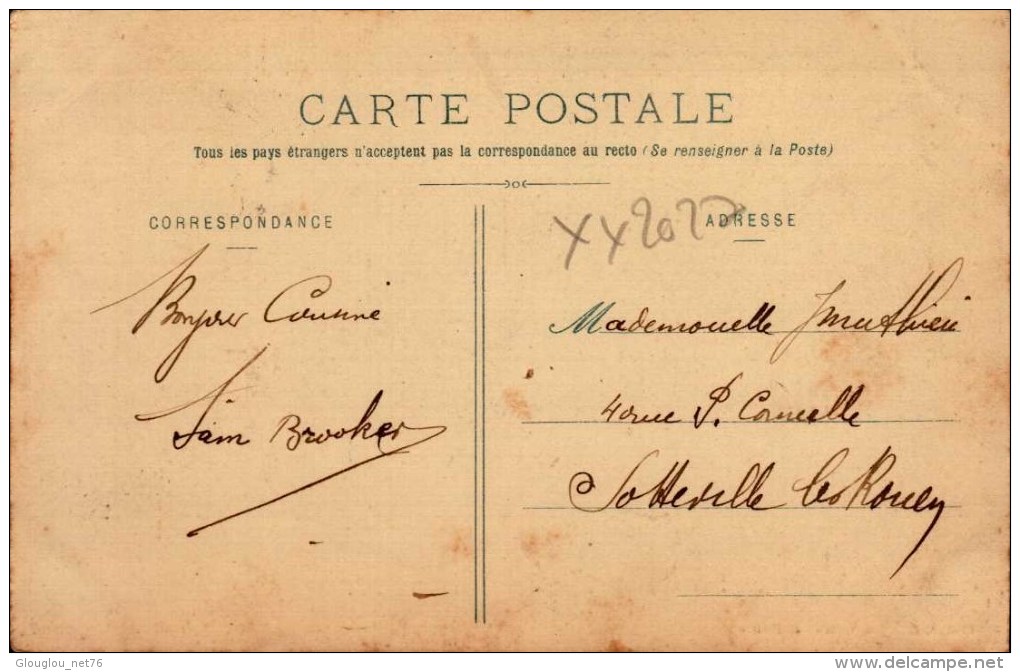 CARTE POSTALE
Tous les pays étrangers n'acceptent pas la correspondance au recto (Se renseigner à la Poste)
CORRESPONDANCE
ADRESSE
Bonjour Cousine
Sam Brooker
Mademoiselle J Mathieu
40 rue P. Corneille
Sotteville les Rouen
Glouglou_net76
delcampe.net